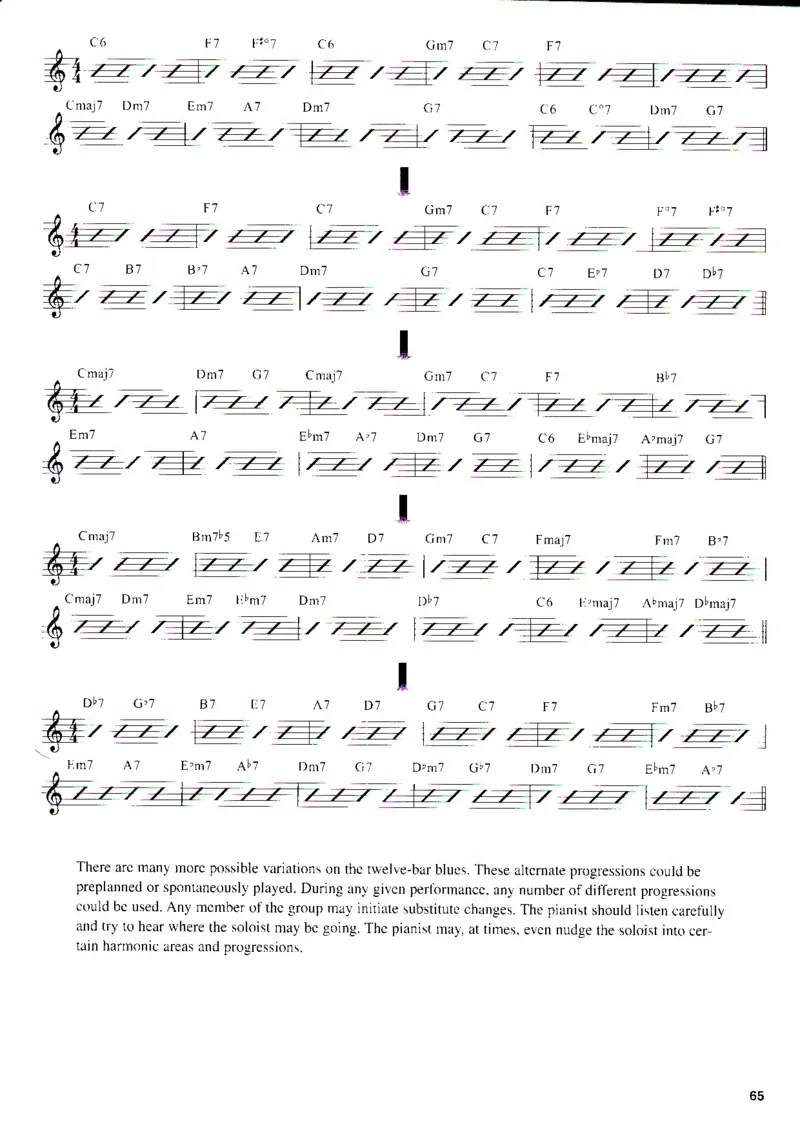 C6 F7 F♯°7 C6 Gm7 C7 F7
Cmaj7 Dm7 Em7 A7 Dm7 G7 C6 C°7 Dm7 G7
C7 F7 C7 Gm7 C7 F7 F°7 F♯°7
C7 B7 B♭7 A7 Dm7 G7 C7 E♭7 D7 D♭7
Cmaj7 Dm7 G7 Cmaj7 Gm7 C7 F7 B♭7
Em7 A7 E♭m7 A♭7 Dm7 G7 C6 E♭maj7 A♭maj7 G7
Cmaj7 Bm7♭5 E7 Am7 D7 Gm7 C7 Fmaj7 Fm7 B♭7
Cmaj7 Dm7 Em7 E♭m7 Dm7 D♭7 C6 E♭maj7 A♭maj7 D♭maj7
D♭7 G♭7 B7 E7 A7 D7 G7 C7 F7 Fm7 B♭7
Em7 A7 E♭m7 A♭7 Dm7 G7 D♭m7 G♭7 Dm7 G7 E♭m7 A♭7
There are many more possible variations on the twelve-bar blues. These alternate progressions could be
preplanned or spontaneously played. During any given performance, any number of different progressions
could be used. Any member of the group may initiate substitute changes. The pianist should listen carefully
and try to hear where the soloist may be going. The pianist may, at times, even nudge the soloist into cer-
tain harmonic areas and progressions.
65